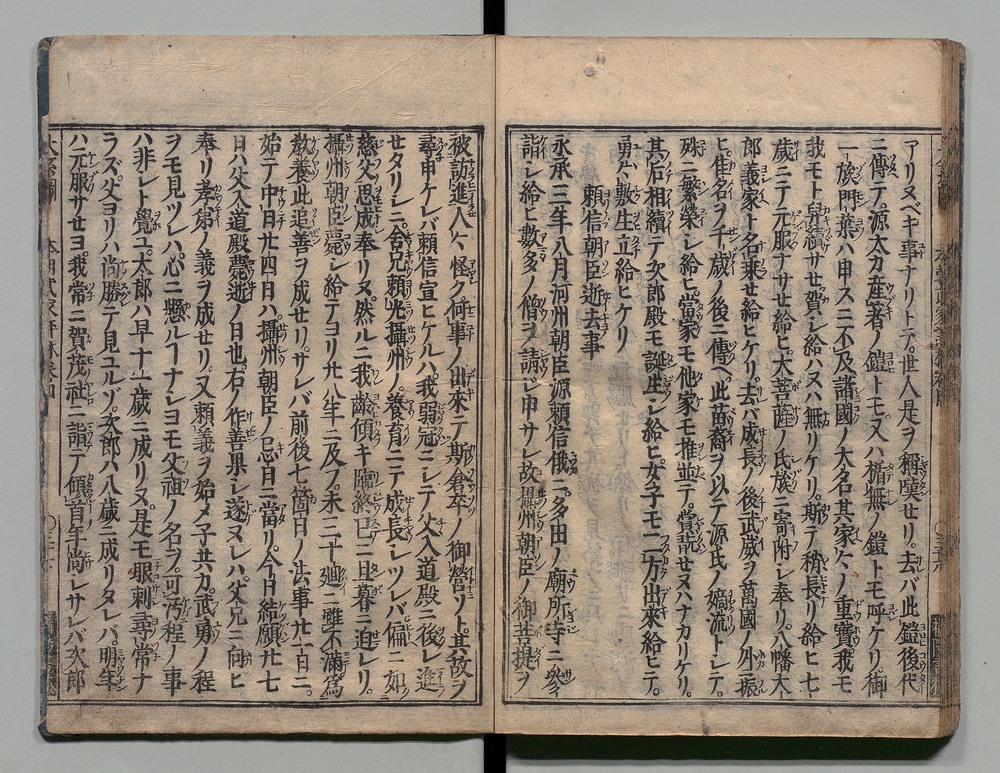 アリヌベキ事ナリトテ世人是ヲ稱嘆セリ。去バ此鎧後代
ニ傳テ源太ガ産著ノ鎧トモ又ハ楯無ノ鎧トモ呼ケリ。御
一族門葉ハ申スニ不及諸國ノ大名其家々ノ重寶我モ
我モト舁續サセ賀シ給ハヌハ無リケリ。斯テ稍長リ給ヒ七
歳ニテ元服ナサセ給ヒ。大菩薩ノ氏族ニ寄附シ奉リ。八幡太
郎義家ト名乘セ給ヒケリ。去バ成長ノ後武威ヲ萬國ノ外ニ振
ヒ佳名ヲ千歳ノ後ニ傳ヘ。此苗裔ヲ以テ源氏ノ嫡流トシテ。
殊ニ繁榮シ給ヒ。當家モ他家モ推並テ。賞翫セヌハナカリケリ。
其后相續テ次郎殿モ誕生シ給ヒ。女子モ二方出來給ヒテ。
勇々敷生立給ヒケリ
頼信朝臣逝去事
永承三年八月河州朝臣源頼信俄ニ。多田ノ廟所寺ニ參
詣シ給ヒ數多ノ僧ヲ請シ申サシ。故攝州朝臣ノ御菩提ヲ
被訪進ケ怪ク何事ノ出來テ斯
御營ゾト其故ヲ
尋申ケレバ頼信宣ヒケルハ。我弱冠ニシテ父入道殿ニ後レ進
セタリシニ。舍兄頼光攝州ノ。養育ニテ成長シツレバ偏ニ如
慈父思成奉リヌ。然ルニ我齢傾キ臨終已ニ旦暮ニ迫レリ。
攝州朝臣薨シ給テヨリ廿八年ニ及ブ。未三十廻ニ雖不滿爲
教養此追善ヲ成セリ。サレバ前後七箇日ノ法事廿一日ニ。
始テ中日廿四日ハ。攝州朝臣ノ忌日ニ當リ。今日結願廿七
日ハ父入道殿薨逝ノ日也。右ノ作善果シ遂ヌレハ。父兄ニ向ヒ
奉リ孝弟ノ義ヲ成セリ。又頼義ヲ始メ子共カ。武勇ノ程
ヲモ見ツレハ。心ニ懸ルヿナシ。ヨモ父祖ノ名ヲ。可汚程ノ事
ハ非シト覺ユ。太郎ハ早十一歳ニ成リヌ。是モ眼刺尋常ナ
ラズ。父ヨリハ尚勝テ見ユルゾ。次郎ハ八歳ニ成リタレバ。明年
ハ元服サセヨ。我常ニ賀茂社ニ詣テ傾首年尚シサレバ次郎